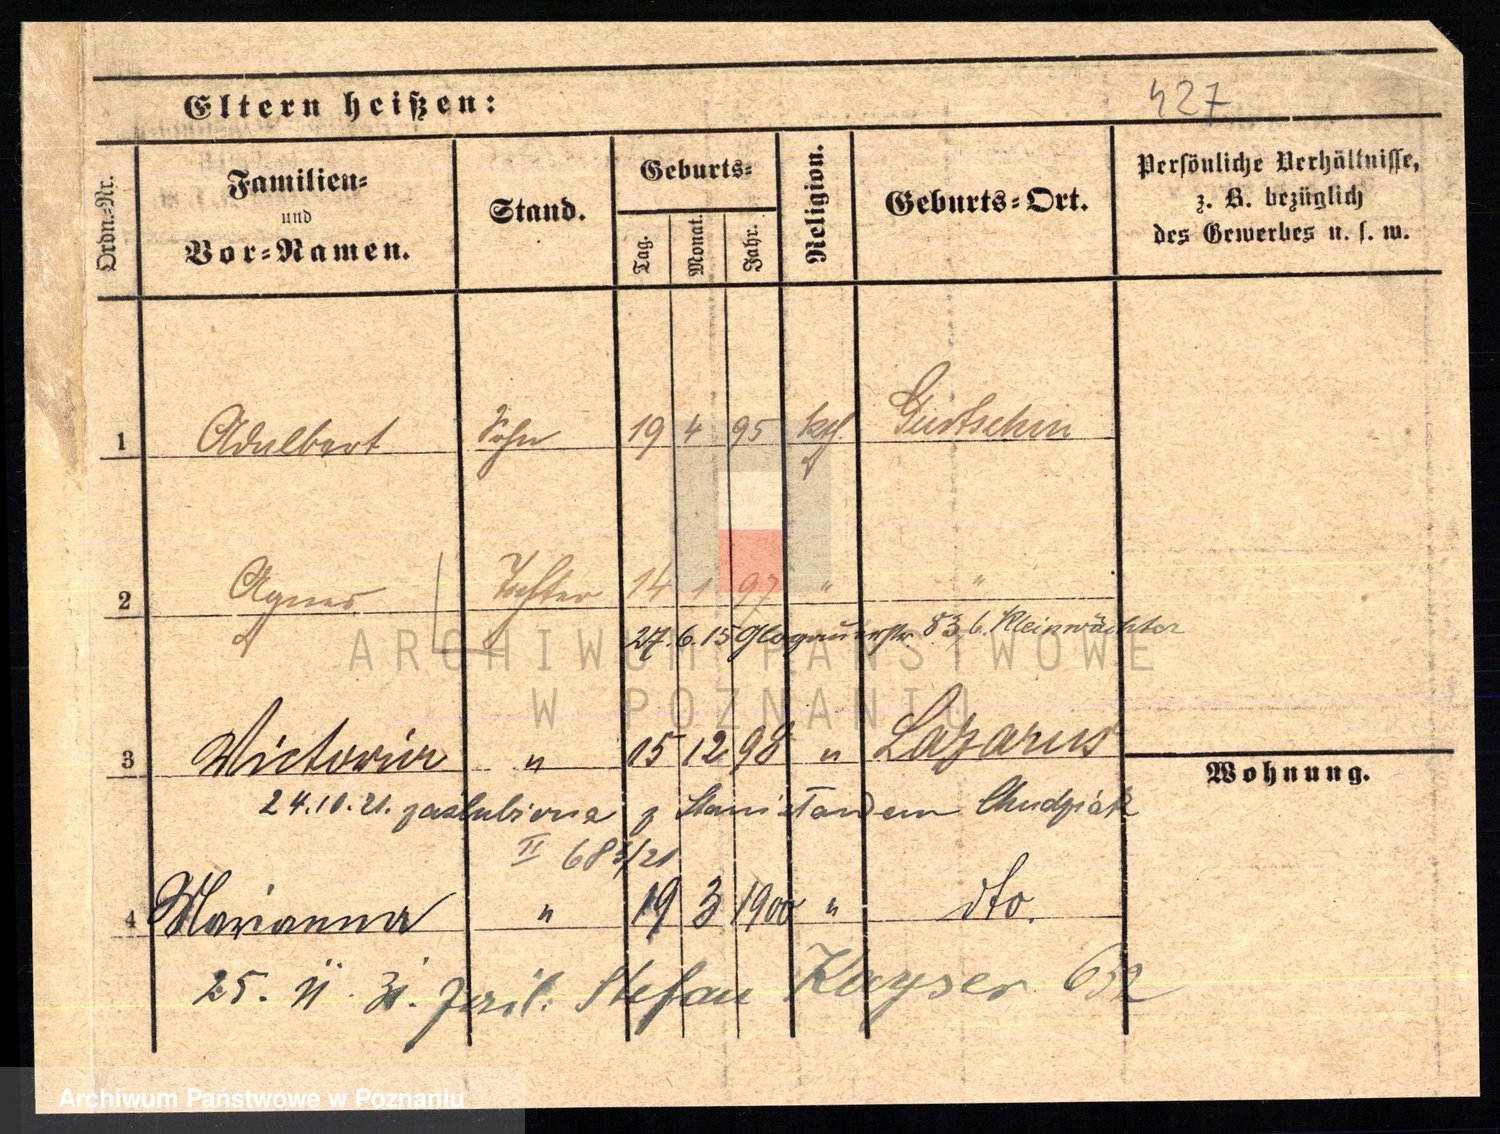 427
Eltern heißen:
Ordn=Nr.
Familien=
und
Vor=Namen.
Stand.
Geburts=
Tag.
Monat.
Jahr.
Religion.
Geburts=Ort.
Persönliche Verhältnisse,
z. B. bezüglich
des Gewerbes u. s. w.
1 Adalbert Sohn 19 4 95 kath. Gurtschin
2 Agnes Tochter 14 1 97 " "
27. 6. 15 Glogauerstr. 83, b. Kleinwächter
ARCHIWUM PAŃSTWOWE
W POZNANIU
3 Victoria " 15 12 98 " Lazarus
Wohnung.
24.10.21. zaślubiona z Stanisławem Chudziak
II 685/21
4 Marianna " 19 3 1900 " dto.
25. II. 31. Stefan Kayser 652
Archiwum Państwowe w Poznaniu